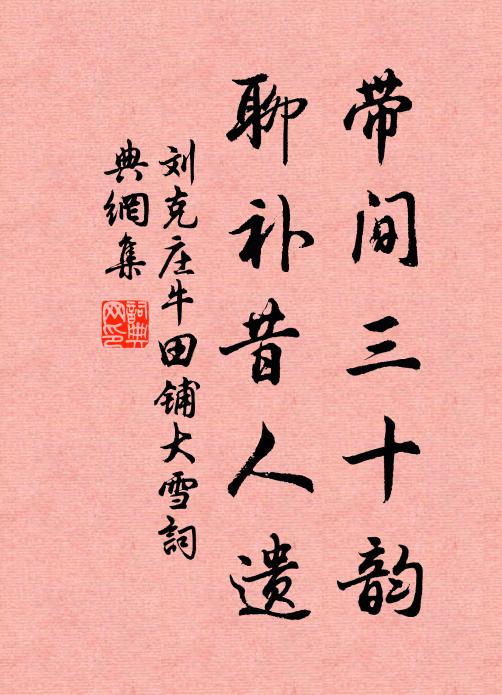 带间三十韵
聊补昔人遗
刘克庄牛田铺大雪詞
典網集
詞典网印